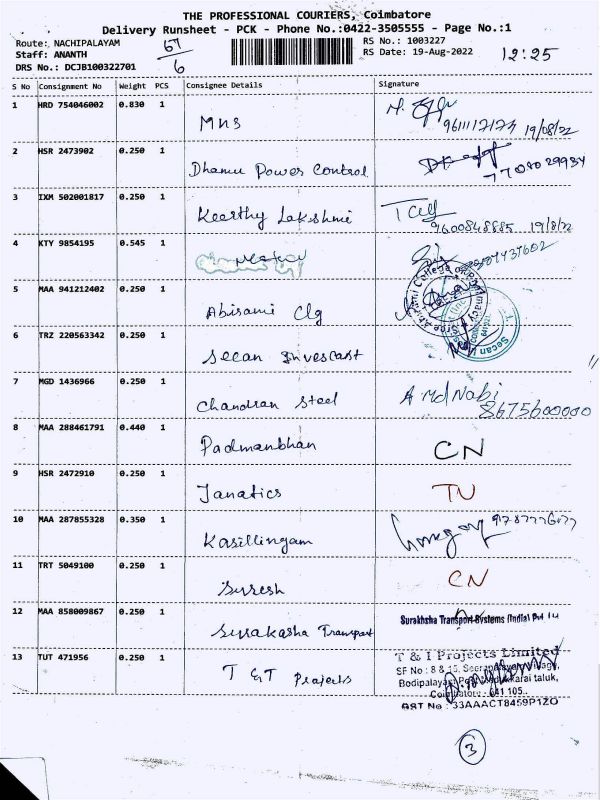 THE PROFESSIONAL COURIERS, Coimbatore
Delivery Runsheet - PCK - Phone No.:0422-3505555 - Page No.:1
Route: NACHIPALAYAM 67/6 RS No.: 1003227
Staff: ANANTH RS Date: 19-Aug-2022 12:25
DRS No.: DCJB100322701
S No Consignment No Weight PCS Consignee Details Signature
1 HRD 754046002 0.830 1
MNS 9611117173 19/08/22
2 HSR 2473902 0.250 1
Dhamu Power Control 7708029934
3 IXM 502001817 0.250 1
Keerthy Lakshmi 9600848885 19/8/22
4 KTY 9854195 0.545 1
5 MAA 941212402 0.250 1
Abirami Clg
6 TRZ 220563342 0.250 1
Secan Invescast
7 MGD 1436966 0.250 1
Chandran Steel A Md Nabi
8675600000
8 MAA 288461791 0.440 1
Padmanbhan CN
9 HSR 2472910 0.250 1
Janatics TN
10 MAA 287855328 0.350 1
Kasillingam
11 TRT 5049100 0.250 1
Suresh CN
12 MAA 858009867 0.250 1
Surakasha Transport Surakhsha Transport Systems (India) Pvt
13 TUT 471956 0.250 1
T & T Projects T & I Projects Limited
SF No : 8 & 15,
Bodipalayam taluk,
Coimbatore - 641 105.
GST No : 33AAACT8459P1ZO
3